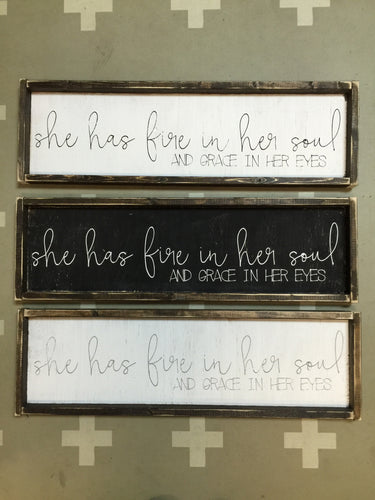 she has fire in her soul
AND GRACE IN HER EYES
she has fire in her soul
AND GRACE IN HER EYES
she has fire in her soul
AND GRACE IN HER EYES